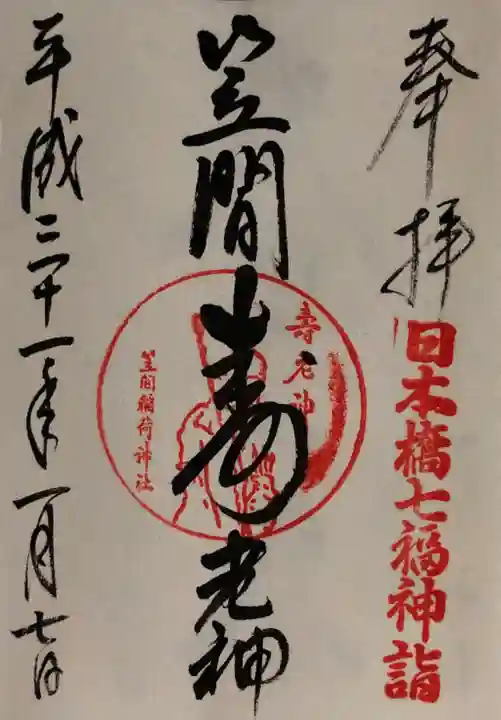 奉拝
日本橋七福神詣
笠間寿老神
壽老神
笠間稲荷神社
平成三十一年一月七日